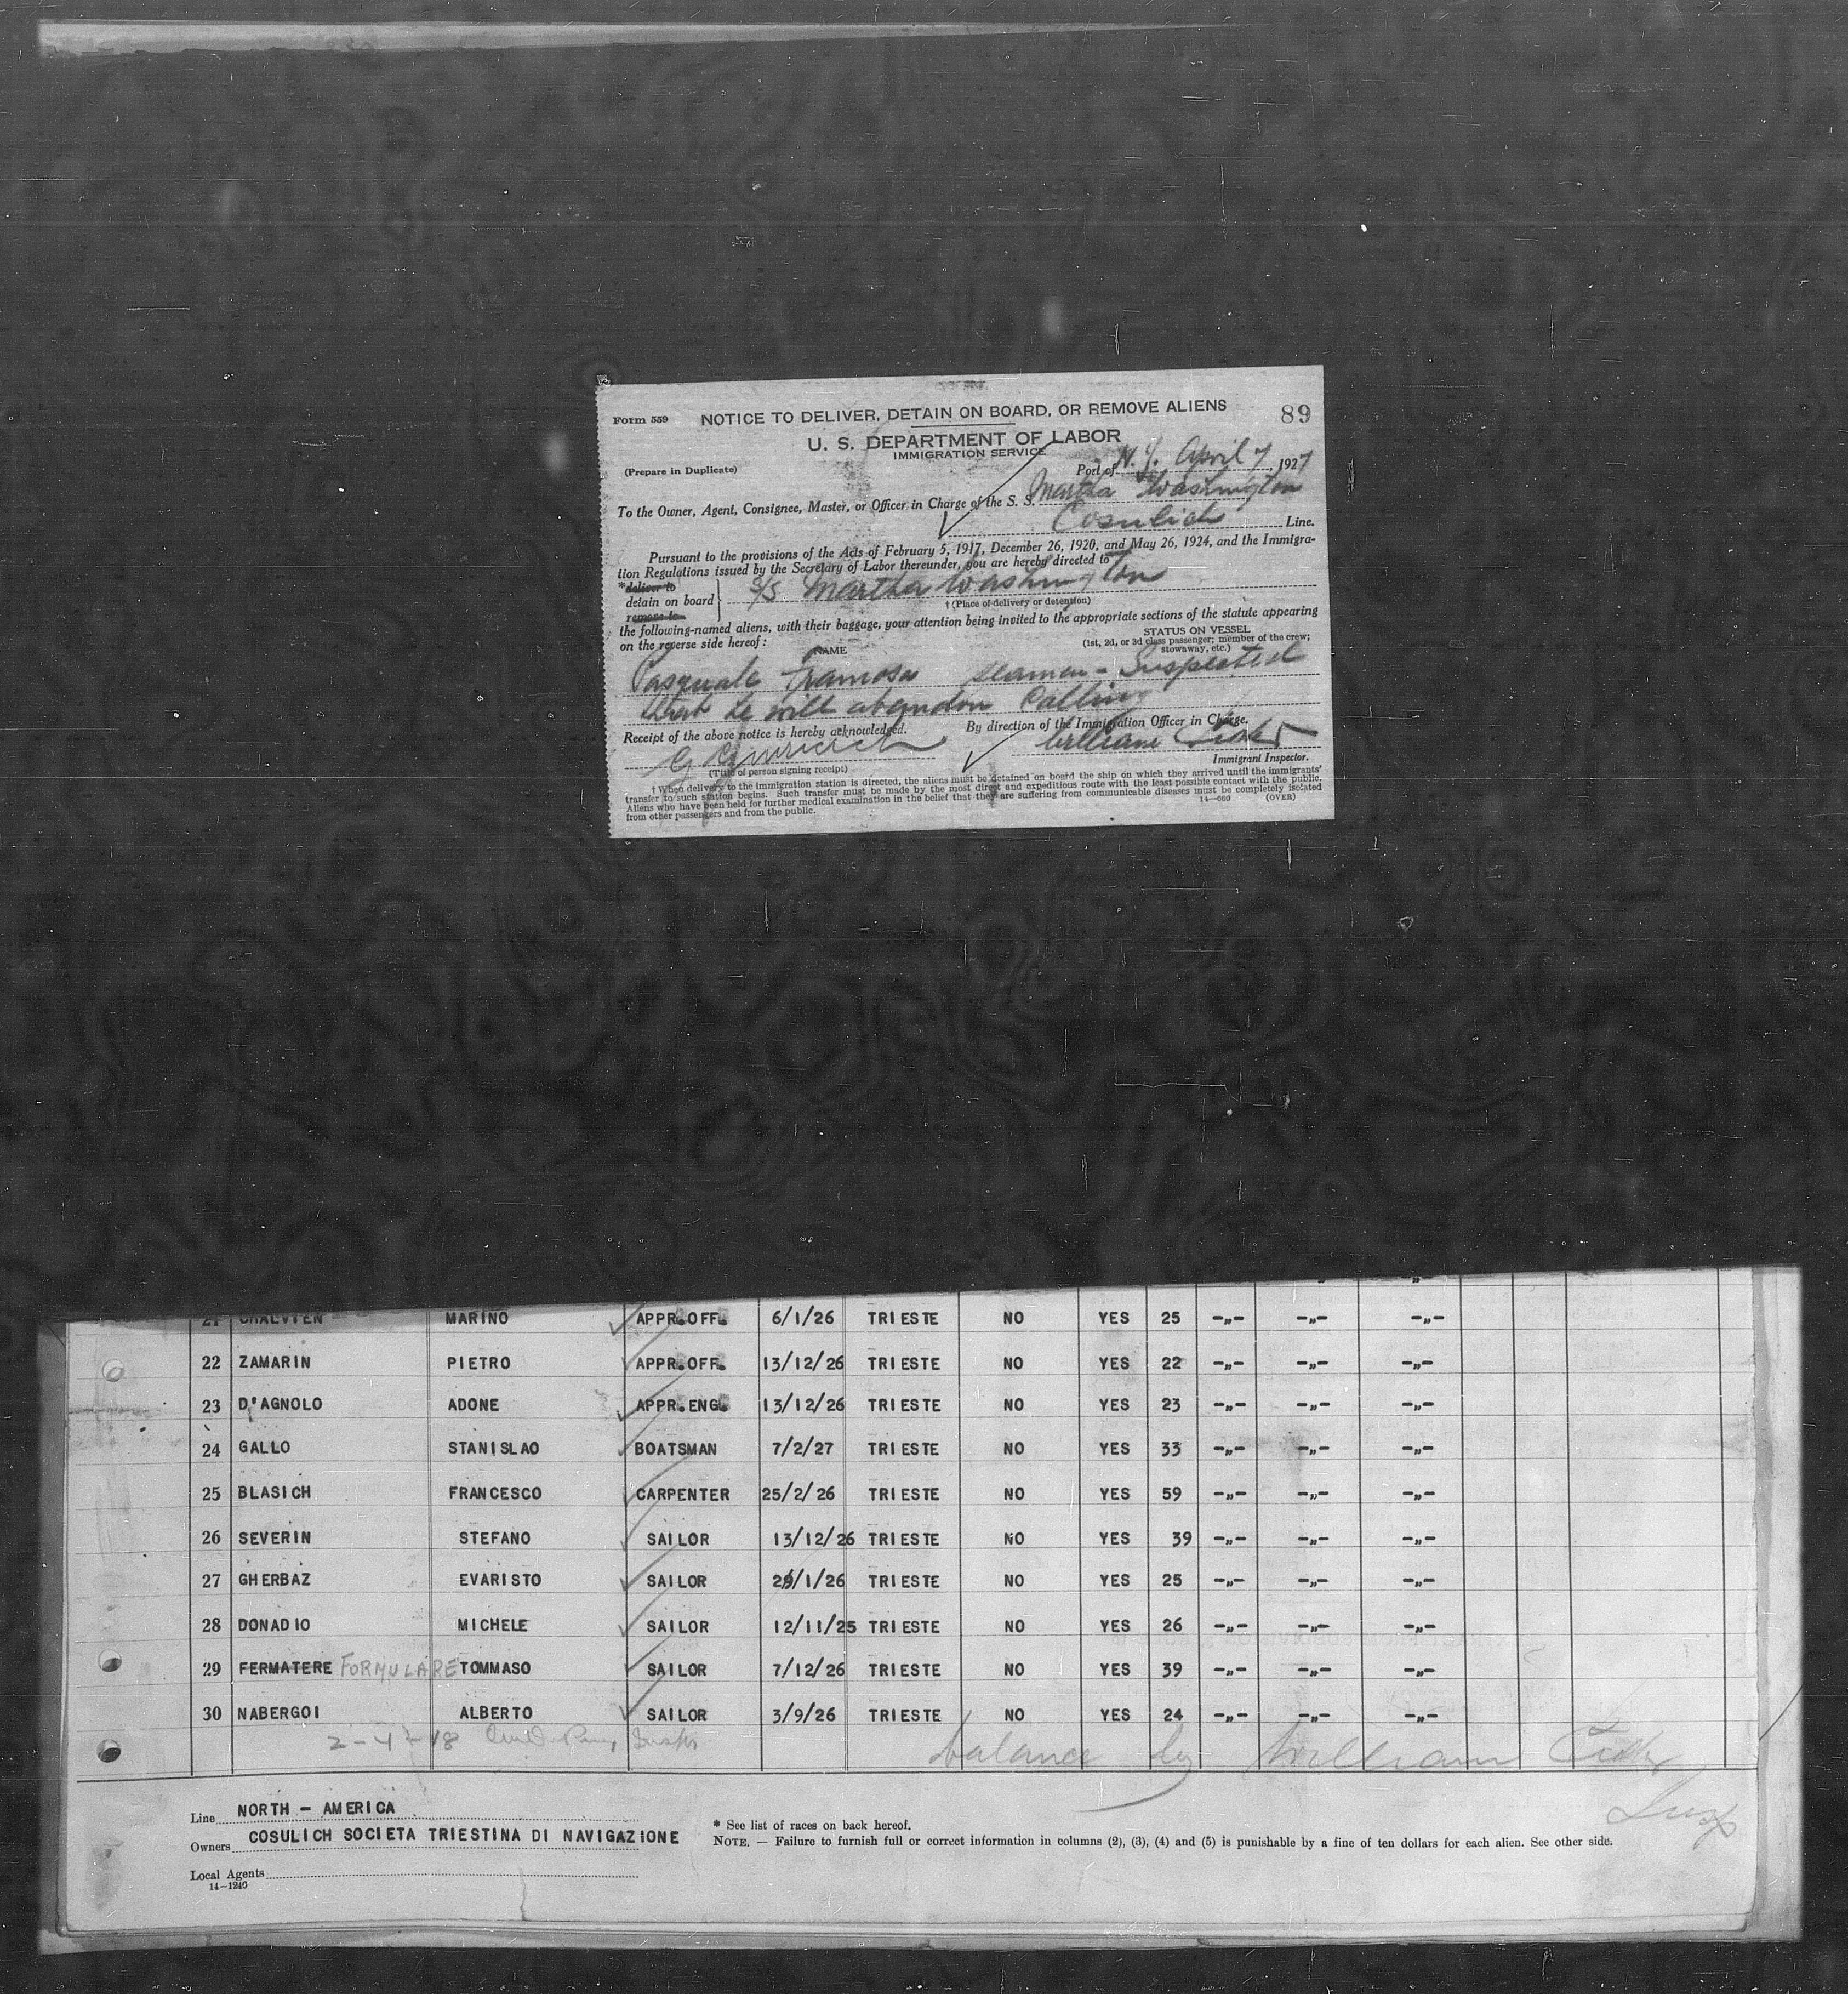 Form 559 NOTICE TO DELIVER, DETAIN ON BOARD, OR REMOVE ALIENS 89
U. S. DEPARTMENT OF LABOR
IMMIGRATION SERVICE
(Prepare in Duplicate) Port of N.Y. April 7, 1927
To the Owner, Agent, Consignee, Master, or Officer in Charge of the S. S. Martha Washington
Cosulich Line.
Pursuant to the provisions of the Acts of February 5, 1917, December 26, 1920, and May 26, 1924, and the Immigra-
tion Regulations issued by the Secretary of Labor thereunder, you are hereby directed to
*deliver to
detain on board S/S Martha Washington
remove to
† (Place of delivery or detention)
the following-named aliens, with their baggage, your attention being invited to the appropriate sections of the statute appearing
on the reverse side hereof:
NAME
STATUS ON VESSEL
(1st, 2d, or 3d class passenger; member of the crew;
stowaway, etc.)
Pasquale seaman - Suspected
that he will abandon Calling
Receipt of the above notice is hereby acknowledged. By direction of the Immigration Officer in Charge.
G William
(Title of person signing receipt) Immigrant Inspector.
† When delivery to the immigration station is directed, the aliens must be detained on board the ship on which they arrived until the immigrants'
transfer to such station begins. Such transfer must be made by the most direct and expeditious route with the least possible contact with the public.
Aliens who have been held for further medical examination in the belief that they are suffering from communicable diseases must be completely isolated
from other passengers and from the public. 14—660 (OVER)
21 CHALVIEN MARINO APPR.OFF. 6/1/26 TRIESTE NO YES 25 -„- -„- -„-
22 ZAMARIN PIETRO APPR.OFF. 13/12/26 TRIESTE NO YES 22 -„- -„- -„-
23 D'AGNOLO ADONE APPR.ENG. 13/12/26 TRIESTE NO YES 23 -„- -„- -„-
24 GALLO STANISLAO BOATSMAN 7/2/27 TRIESTE NO YES 33 -„- -„- -„-
25 BLASICH FRANCESCO CARPENTER 25/2/26 TRIESTE NO YES 59 -„- -„- -„-
26 SEVERIN STEFANO SAILOR 13/12/26 TRIESTE NO YES 39 -„- -„- -„-
27 GHERBAZ EVARISTO SAILOR TRIESTE NO YES 25 -„- -„- -„-
28 DONADIO MICHELE SAILOR 12/11/25 TRIESTE NO YES 26 -„- -„- -„-
29 FERMATERE FORMULARE TOMMASO SAILOR 7/12/26 TRIESTE NO YES 39 -„- -„- -„-
30 NABERGOI ALBERTO SAILOR 3/9/26 TRIESTE NO YES 24 -„- -„- -„-
balance by William
Insp
Line NORTH - AMERICA
Owners COSULICH SOCIETA TRIESTINA DI NAVIGAZIONE
Local Agents
14—1240
* See list of races on back hereof.
NOTE. — Failure to furnish full or correct information in columns (2), (3), (4) and (5) is punishable by a fine of ten dollars for each alien. See other side.